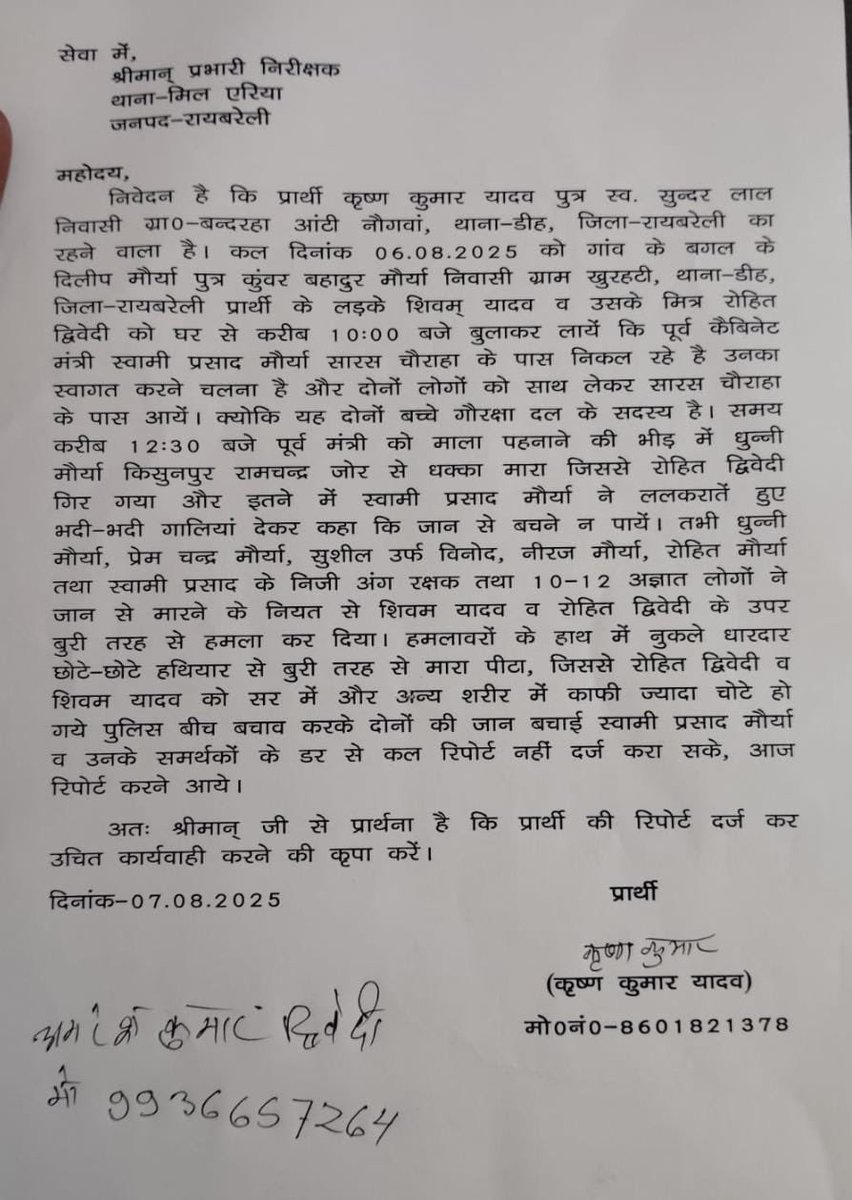 सेवा में,
श्रीमान् प्रभारी निरीक्षक
थाना-मिल एरिया
जनपद-रायबरेली
महोदय,
निवेदन है कि प्रार्थी कृष्ण कुमार यादव पुत्र स्व. सुन्दर लाल
निवासी ग्रा0-बन्दरहा आंटी नौगवां, थाना-डीह, जिला-रायबरेली का
रहने वाला है। कल दिनांक 06.08.2025 को गांव के बगल के
दिलीप मौर्या पुत्र कुंवर बहादुर मौर्या निवासी ग्राम खुरहटी, थाना-डीह,
जिला-रायबरेली प्रार्थी के लड़के शिवम् यादव व उसके मित्र रोहित
द्विवेदी को घर से करीब 10:00 बजे बुलाकर लायें कि पूर्व कैबिनेट
मंत्री स्वामी प्रसाद मौर्या सारस चौराहा के पास निकल रहे है उनका
स्वागत करने चलना है और दोनों लोगों को साथ लेकर सारस चौराहा
के पास आयें। क्योकि यह दोनों बच्चे गौरक्षा दल के सदस्य है। समय
करीब 12:30 बजे पूर्व मंत्री को माला पहनाने की भीड़ में धुन्नी
मौर्या किसुनपुर रामचन्द्र जोर से धक्का मारा जिससे रोहित द्विवेदी
गिर गया और इतने में स्वामी प्रसाद मौर्या ने ललकरातें हुए
भदी-भदी गालियां देकर कहा कि जान से बचने न पायें। तभी धुन्नी
मौर्या, प्रेम चन्द्र मौर्या, सुशील उर्फ विनोद, नीरज मौर्या, रोहित मौर्या
तथा स्वामी प्रसाद के निजी अंग रक्षक तथा 10-12 अज्ञात लोगों ने
जान से मारने के नियत से शिवम यादव व रोहित द्विवेदी के उपर
बुरी तरह से हमला कर दिया। हमलावरों के हाथ में नुकले धारदार
छोटे-छोटे हथियार से बुरी तरह से मारा पीटा, जिससे रोहित द्विवेदी व
शिवम यादव को सर में और अन्य शरीर में काफी ज्यादा चोटे हो
गये पुलिस बीच बचाव करके दोनों की जान बचाई स्वामी प्रसाद मौर्या
व उनके समर्थकों के डर से कल रिपोर्ट नहीं दर्ज करा सके, आज
रिपोर्ट करने आये।
अतः श्रीमान् जी से प्रार्थना है कि प्रार्थी की रिपोर्ट दर्ज कर
उचित कार्यवाही करने की कृपा करें।
दिनांक-07.08.2025
प्रार्थी
कृष्ण कुमार
(कृष्ण कुमार यादव)
मो0नं0-8601821378
कुमार द्विवेदी
मो 9936657264